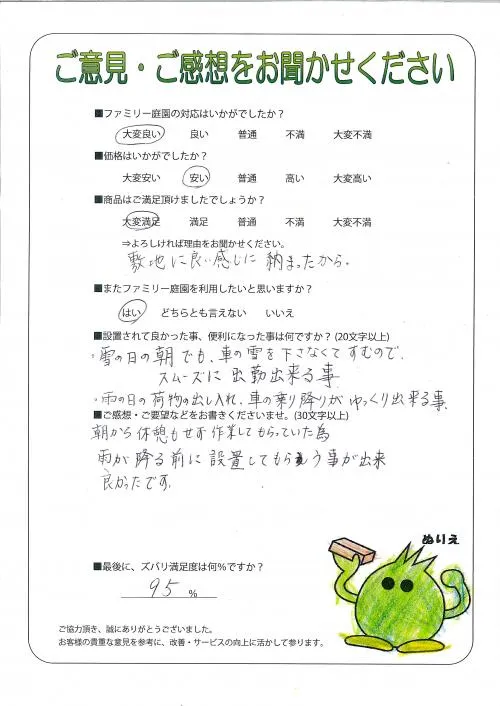 ご意見・ご感想をお聞かせください
■ファミリー庭園の対応はいかがでしたか？
大変良い 良い 普通 不満 大変不満
■価格はいかがでしたか？
大変安い 安い 普通 高い 大変高い
■商品はご満足頂けましたでしょうか？
大変満足 満足 普通 不満 大変不満
⇒よろしければ理由をお聞かせください。
敷地に良い感じに納まったから。
■またファミリー庭園を利用したいと思いますか？
はい どちらとも言えない いいえ
■設置されて良かった事、便利になった事は何ですか？(20文字以上)
・雪の日の朝でも、車の雪を下さなくてすむので、
スムーズに出勤出来る事
・雨の日の荷物の出し入れ、車の乗り降りがゆっくり出来る事、
■ご感想・ご要望などをお書きくださいませ。(30文字以上)
朝から休憩もせず作業してもらっていた為
雨が降る前に設置してもらう事が出来
良かったです。
ぬりえ
■最後に、ズバリ満足度は何％ですか？
95 %
ご協力頂き、誠にありがとうございました。
お客様の貴重な意見を参考に、改善・サービスの向上に活かして参ります。